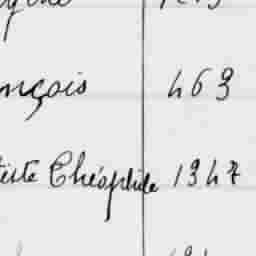 nçois 463
tiste Théophile 1347